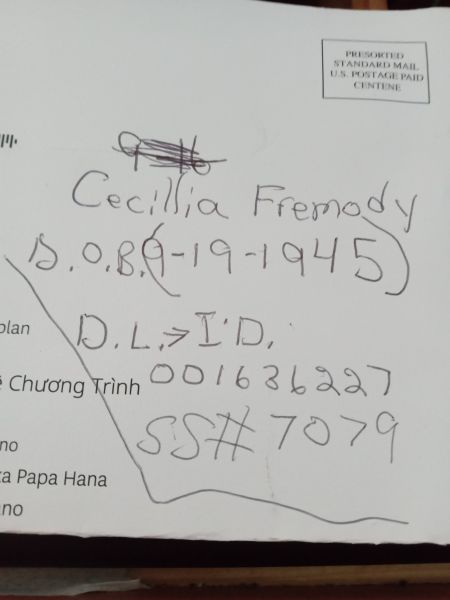 PRESORTED
STANDARD MAIL
U.S. POSTAGE PAID
CENTENE
Cecillia Fremody
D.O.B. (9-19-1945)
D.L.→I.D.
001636227
SS# 7079
plan
Chương Trình
no
ka Papa Hana
no